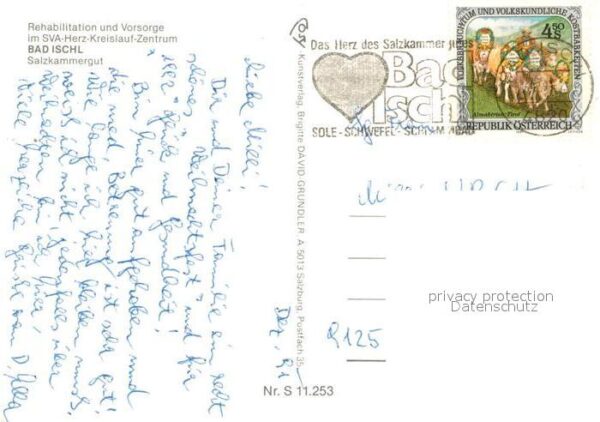 Rehabilitation und Vorsorge
im SVA-Herz-Kreislauf-Zentrum
BAD ISCHL
Salzkammergut
Liebe Milli!
Dir und Deiner Familie ein recht
schönes Weihnachtsfest und für
Glück und Gesundheit!
Bin hier gut aufgehoben und
die med. Betreuung ist sehr gut!
Wie lange ich hier bleiben muss,
weiß ich nicht, jedenfalls über
hier.
Viele herzliche Grüße von D.
Dez.
Kunstverlag, Brigitte DAVID-GRÜNDLER A 5013 Salzburg, Postfach 35
Nr. S 11.253
Das Herz des Salzkammergutes
Bad
Ischl
SOLE - SCHWEFEL - SCHLAMM
VOLKSBRAUCHTUM UND VOLKSKUNDLICHE KOSTBARKEITEN
4.50
S
Almabtrieb-Tirol
REPUBLIK ÖSTERREICH
8125
privacy protection
Datenschutz